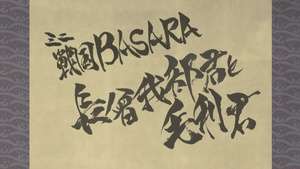 ミニ戦国BASARA
長曾我部君と
毛利君